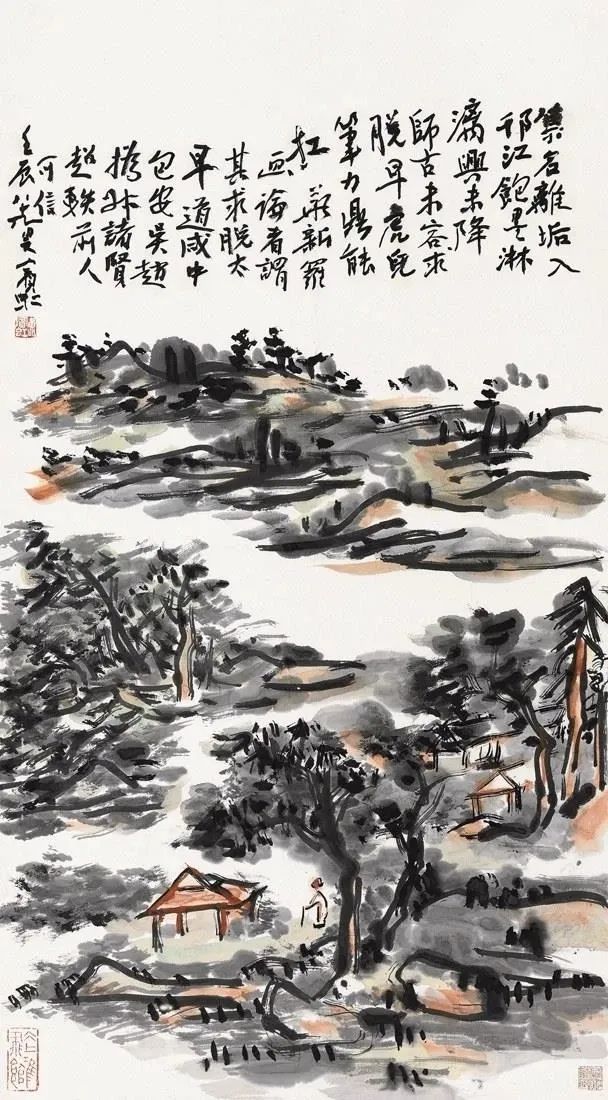 集名離垢入
邗江飽墨淋
漓興未降
師古未容求
脫早虎兒
筆力鼎能
扛 華新羅
畫論者謂
其求脫太
早道咸中
包安吳趙
撝叔諸賢
超軼前人
可信
壬辰 叟賓虹